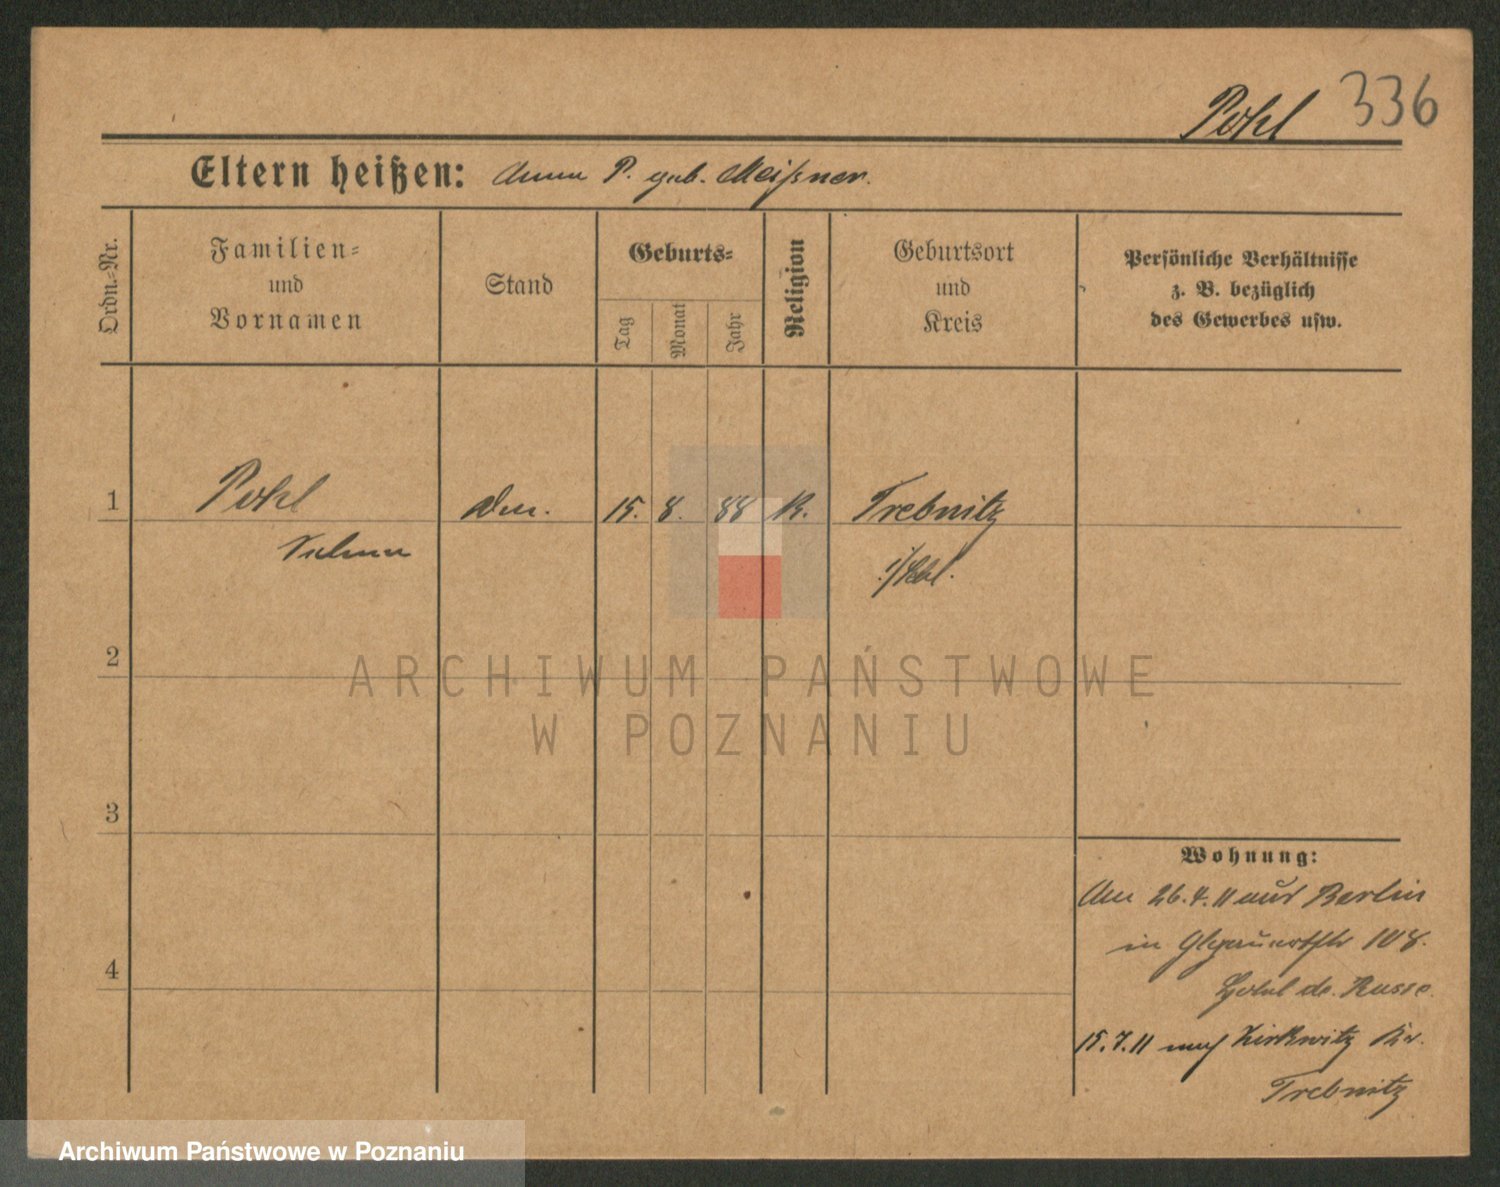 Pohl 336
Eltern heißen: Anna P. geb. Meißner.
Ordn.-Nr.
Familien-
und
Vornamen
Stand
Geburts-
Tag
Monat
Jahr
Religion
Geburtsort
und
Kreis
Persönliche Verhältnisse
z. B. bezüglich
des Gewerbes usw.
1 Pohl 15. 8. 88 K. Trebnitz
i/Schl.
2
3
4
Wohnung:
26.4.11 aus Berlin
in 108.
Hotel de Russe.
15.7.11 nach Zirkwitz Kr.
Trebnitz
ARCHIWUM PAŃSTWOWE
W POZNANIU
Archiwum Państwowe w Poznaniu